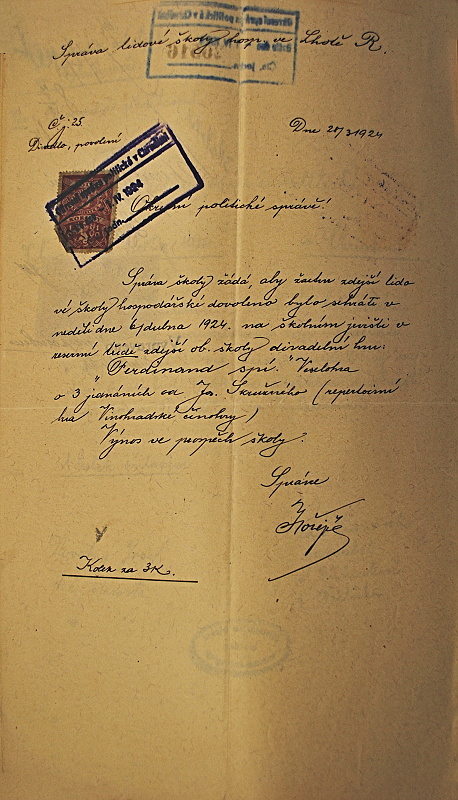 Správa lidové školy hosp. ve Lhotě R.
Č. 25.
Dne 20/3 1924
Divadlo, povolení
politická v Chrudimi
IV. 1924
Okresní politické správě!
Správa školy žádá, aby žactvu zdejší lido
vé školy hospodářské dovoleno bylo sehráti v
neděli dne 6. dubna 1924. na školním jevišti v
reservní třídě zdejší ob. školy divadelní hru:
"Ferdinand spí." Veselohra
o 3 jednáních od Jos. Skružného (repertoirní
hra Vinohradské činohry)
Výnos ve prospěch školy.
Správce
Kolek za 3K.